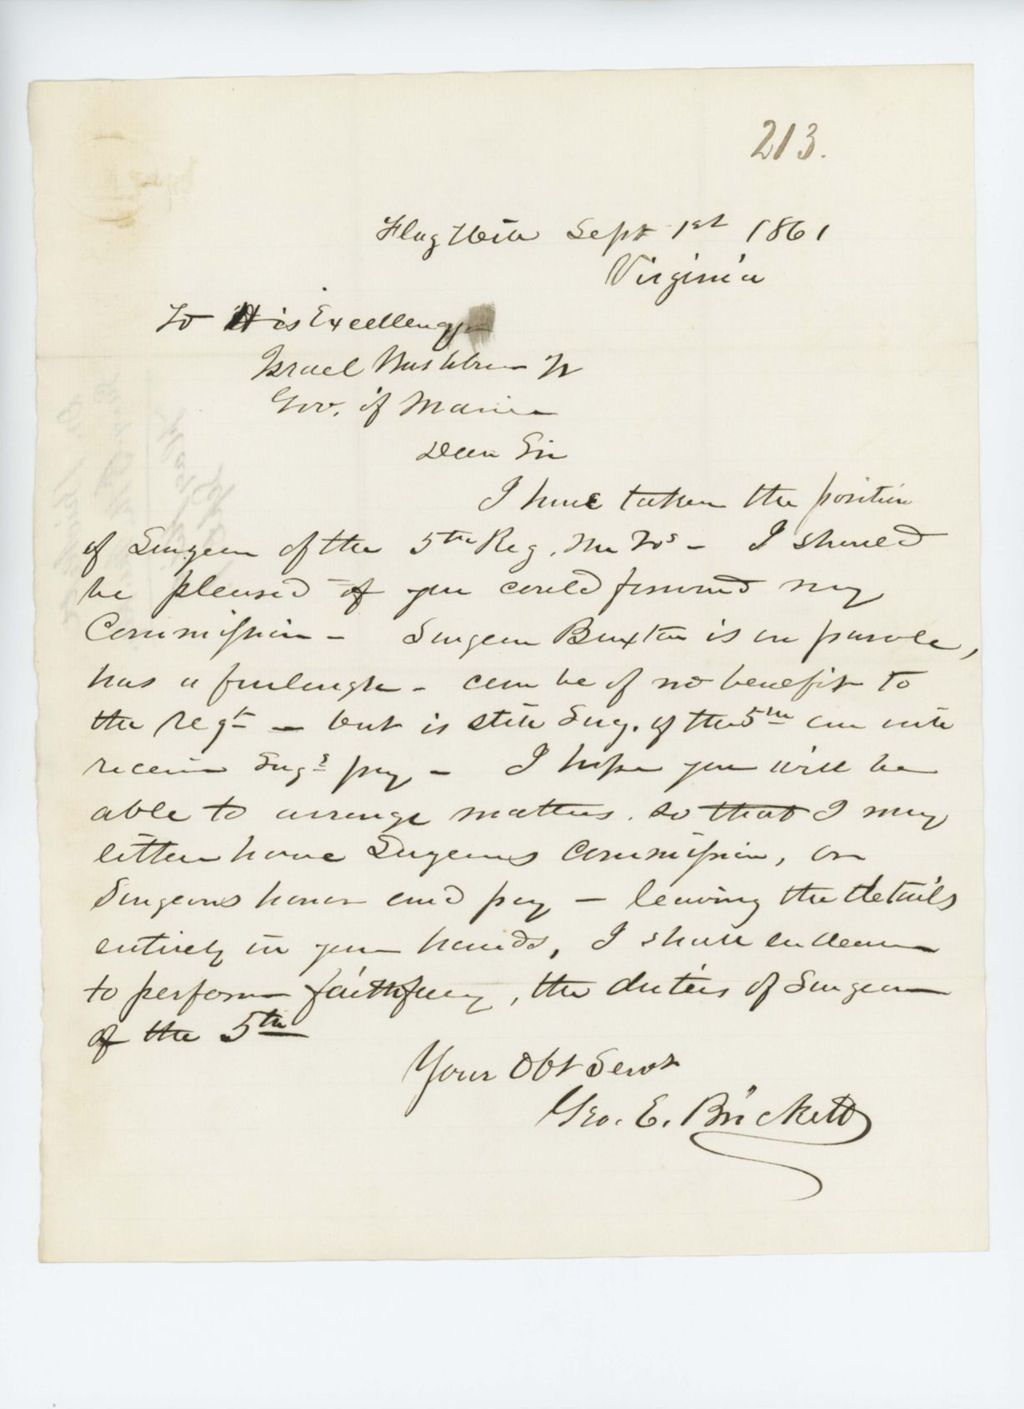 213.
Flag Hill Sept 1st 1861
Virginia
To His Excellency
Israel Washburn Jr
Gov. of Maine
Dear Sir
I have taken the position
of Surgeon of the 5th Reg. Me Vos - I should
be pleased if you could forward my
Commission - Surgeon Buxton is on parole,
has a furlough - can be of no benefit to
the regt - but is still Surg. of the 5th and will
receive Surgs pay - I hope you will be
able to arrange matters. so that I may
either have Surgeons Commission, or
Surgeons honor and pay - leaving the details
entirely in your hands, I shall endeavor
to perform faithfully, the duties of Surgeon
of the 5th
Your Obt Servt
Geo. E. Brickett